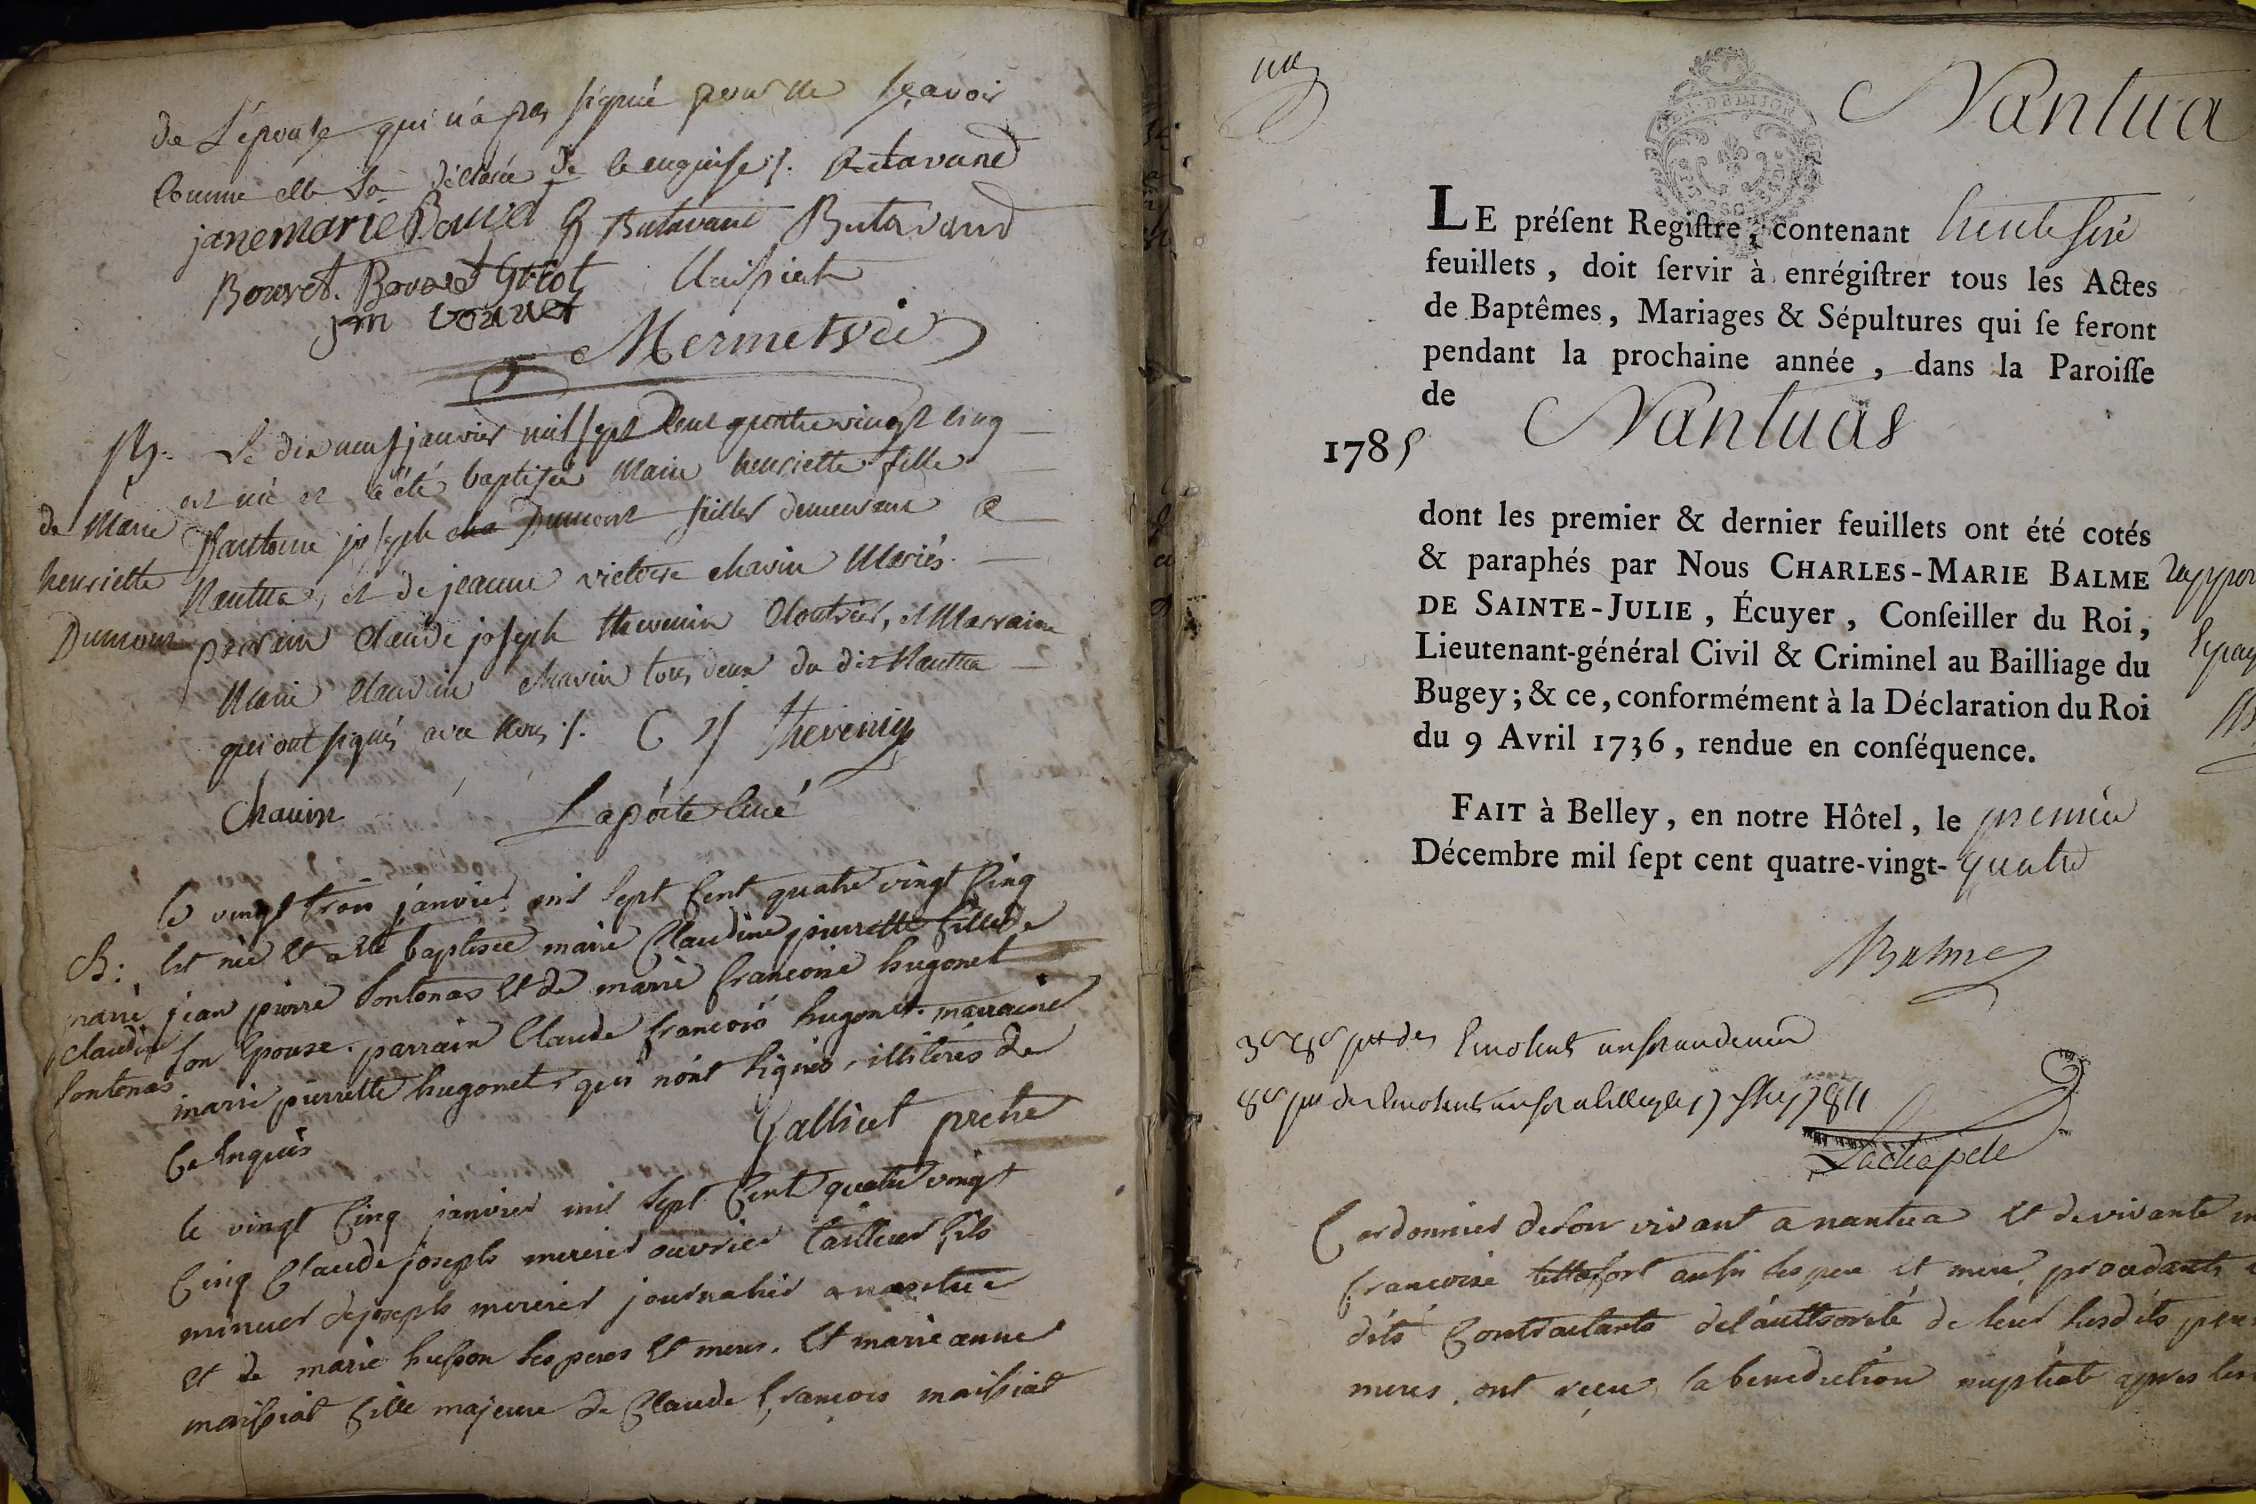 de L'épouse qui n'a pas signé pour ne sçavoir
comme elle l'a déclaré de ce enquise ./. Butavand
janemarie Bouvet Butavand Butavand
Bouvet. Bouvet
jm bouvet
Mermet vic
Le dix neuf janvier mil sept cent quatre vingt cinq
est née et a été baptisée Marie henriette fille
de Marie
d'antoine joseph Dumont demeurant a
henriette
Nantua, et de jeanne victoire chavin Mariés.
Dumont
parrain Claude joseph thevenin Cloutrier, et Marraine
Marie Claudine chavin tous deux du dit Nantua
qui ont signés avec Nous ./. C J thevenin
Chavin Laporte Curé
le vingt trois janvier mil sept cent quatre vingt cinq
B: est née et a été baptisée marie Claudine pierrette fille de
marie jean pierre Sontonas et de marie francoise hugonet
claudine son Epouse. parrain Claude francois hugonet. marraine
Sontonas
marie pierrette hugonet, qui n'ont signés, illiterés de
ce Enquis Gallicet pretre
le vingt cinq janvier mil sept cent quatre vingt
cinq Claude joseph mercier ouvrier tailleur fils
mineur de joseph mercier journalier a nantua
et de marie husson ses peres et meres. et marie anne
maissiat fille majeure de Claude francois maissiat
Nantua
LE préſent Regiſtre, contenant trente six
feuillets, doit ſervir à enrégiſtrer tous les Actes
de Baptêmes, Mariages & Sépultures qui ſe feront
pendant la prochaine année, dans la Paroiſſe
de Nantuas
1785
dont les premier & dernier feuillets ont été cotés
& paraphés par Nous CHARLES-MARIE BALME
DE SAINTE-JULIE, Écuyer, Conſeiller du Roi,
Lieutenant-général Civil & Criminel au Bailliage du
Bugey; & ce, conformément à la Déclaration du Roi
du 9 Avril 1736, rendue en conſéquence.
FAIT à Belley, en notre Hôtel, le premier
Décembre mil ſept cent quatre-vingt-quatre
Balme
Lachapele
Cordonnier de son vivant a nantua et de vivante
francoise aussi ses pere et mere, procedants
dits Contractants de l'authorité de leur susdits
meres, ont reçeu la benediction nuptial apres